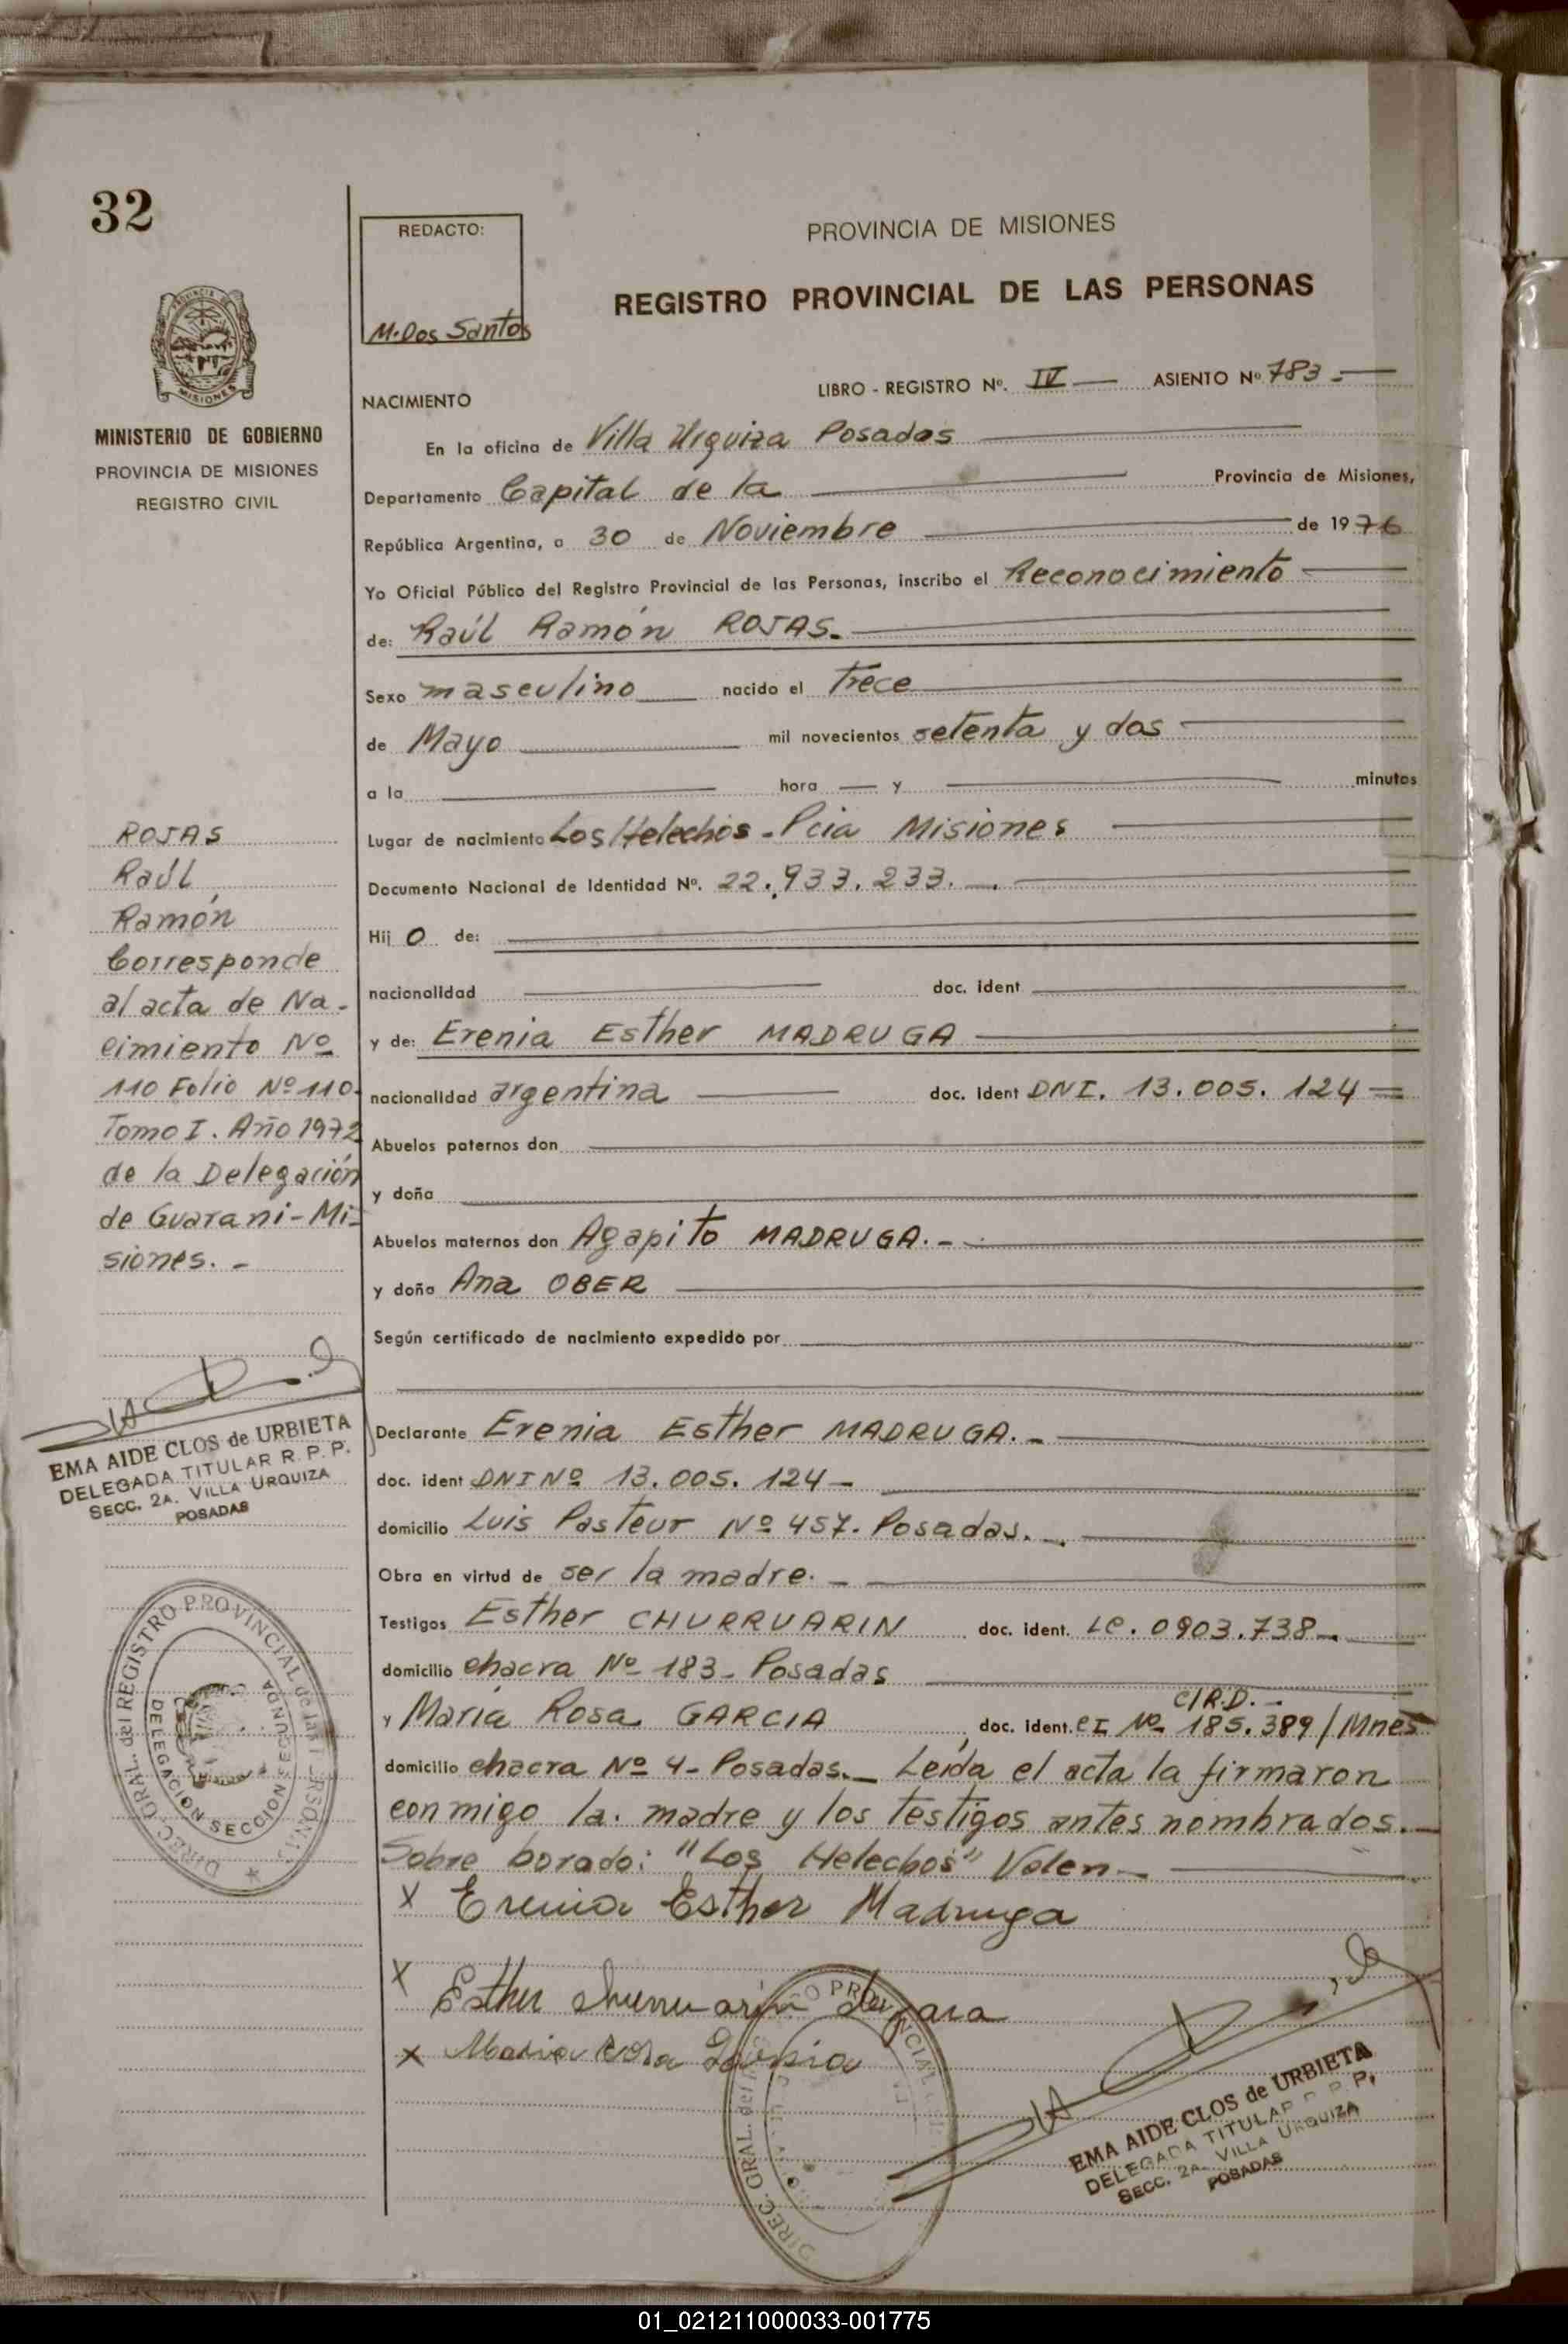 32
REDACTO:
M. Dos Santos
PROVINCIA DE MISIONES
REGISTRO PROVINCIAL DE LAS PERSONAS
MISIONES
MINISTERIO DE GOBIERNO
PROVINCIA DE MISIONES
REGISTRO CIVIL
LIBRO - REGISTRO Nº. IV ASIENTO Nº 783.-
NACIMIENTO
En la oficina de Villa Urquiza Posadas
Departamento Capital de la Provincia de Misiones,
República Argentina, a 30 de Noviembre de 1976
Yo Oficial Público del Registro Provincial de las Personas, inscribo el Reconocimiento
de: Raúl Ramón ROJAS.
Sexo masculino nacido el Trece
de Mayo mil novecientos setenta y dos
a la hora y minutos
Lugar de nacimiento Los Helechos - Pcia Misiones
Documento Nacional de Identidad Nº. 22.933.233.
Hij o de:
nacionalidad doc. ident
y de: Erenia Esther MADRUGA
nacionalidad argentina doc. ident DNI. 13.005.124
Abuelos paternos don
y doña
Abuelos maternos don Agapito MADRUGA.-
y doña Ana OBER
Según certificado de nacimiento expedido por
Declarante Erenia Esther MADRUGA.-
doc. ident DNI Nº 13.005.124-
domicilio Luis Pasteur Nº 457. Posadas.
Obra en virtud de ser la madre.-
Testigos Esther CHURRUARIN doc. ident. Lc. 0903.738
domicilio chacra Nº 183- Posadas
C/R.D.-
y María Rosa GARCIA, doc. ident. CI Nº 185.389/Mnes
domicilio chacra Nº 4- Posadas.- Leída el acta la firmaron
conmigo la madre y los testigos antes nombrados.
Sobre borado: "Los Helechos" Valen-
X Erenia Esther Madruga
X Esther Churruarin de
X Maria Rosa Garcia
EMA AIDE CLOS de URBIETA
DELEGADA TITULAR R. P. P.
SECC. 2A. VILLA URQUIZA
POSADAS
ROJAS
Raúl
Ramón
Corresponde
al acta de Na-
cimiento Nº
110 Folio Nº 110.
Tomo I. Año 1972
de la Delegación
de Guarani-Mi-
siones.-
EMA AIDE CLOS de URBIETA
DELEGADA TITULAR R. P. P.
SECC. 2A. VILLA URQUIZA
POSADAS
DIREC. GRAL. del REGISTRO PROVINCIAL de las PERSONAS
DELEGACION SECCION SEGUNDA
DIREC. GRAL. del
01_021211000033-001775